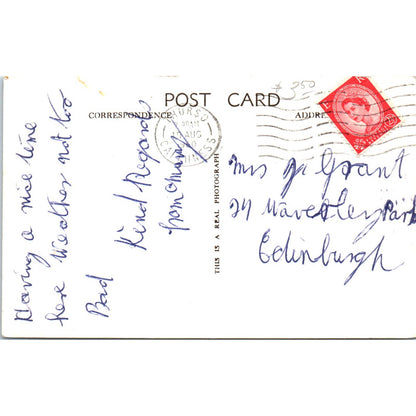 POST CARD
CORRESPONDENCE
ADDRE
$3.50
THURSO
AUG
CAITHNESS
THIS IS A REAL PHOTOGRAPH
Having a nice time
here Weather not too
Bad
Kind Regards
from
Mrs J Grant
24 Waverley Park
Edinburgh